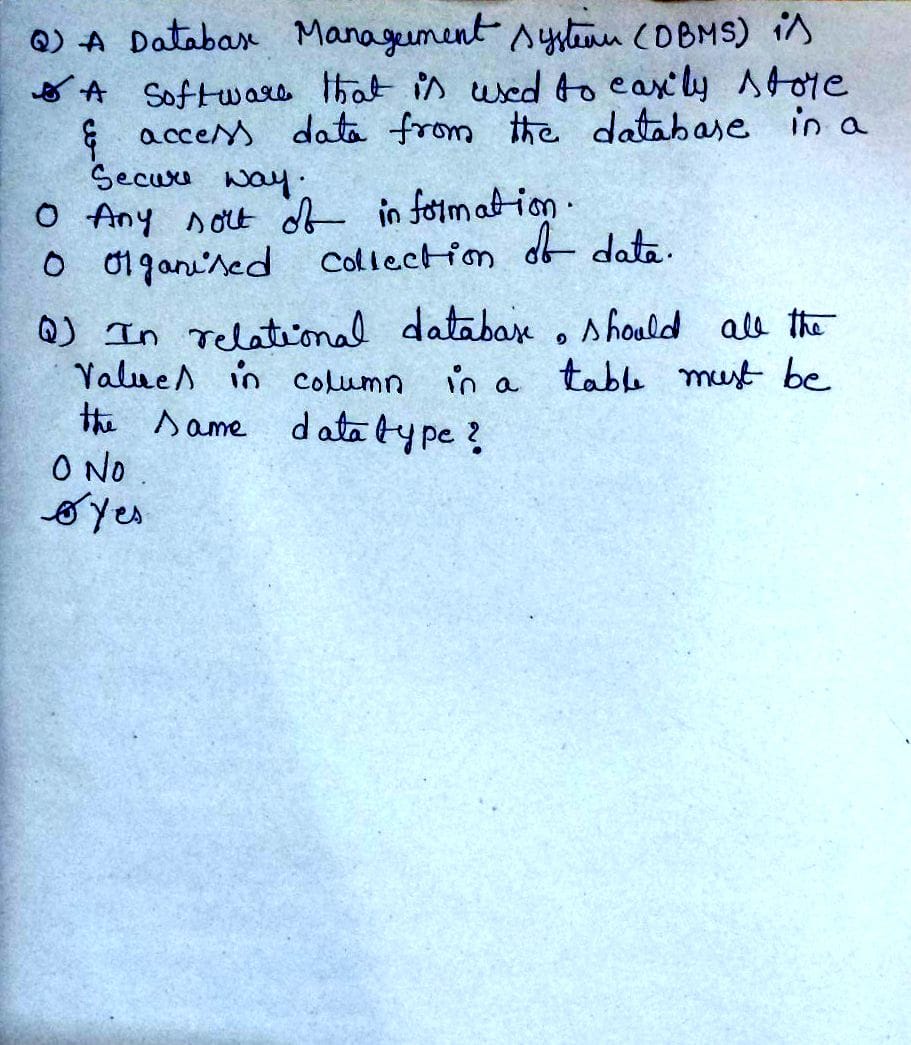 Q) A Database Management system (DBMS) is
A Software that is used to easily store
& access data from the database in a
Secure way.
O Any sort of information.
O Organised collection of data.
Q) In relational database, should all the
Values in column in a table must be
the same datatype?
O No.
Yes